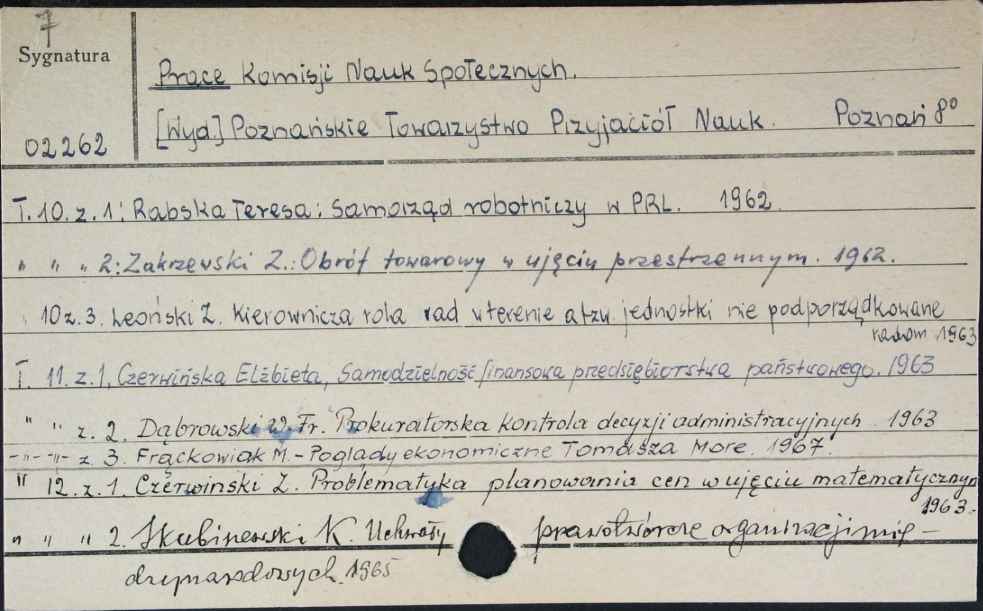 7
Sygnatura
Prace Komisji Nauk Społecznych.
02262
[Wyd.] Poznańskie Towarzystwo Przyjaciół Nauk. Poznań 8°
T. 10. z. 1: Rabska Teresa: Samorząd robotniczy w PRL. 1962
" " " 2: Zakrzewski Z.: Obrót towarowy w ujęciu przestrzennym. 1962.
10 z. 3. Leoński Z. Kierownicza rola rad w terenie a tzw jednostki nie podporządkowane
radom 1963
T. 11. z. 1. Czerwińska Elżbieta, Samodzielność finansowa przedsiębiorstwa państwowego. 1963
" " z. 2. Dąbrowski W. Fr. Prokuratorska kontrola decyzji administracyjnych 1963
-"-"-"- z. 3. Frąckowiak M. - Poglądy ekonomiczne Tomasza More. 1967.
" 12. z. 1. Czerwinski Z. Problematyka planowania cen w ujęciu matematycznym
1963.
" " " 2. Skubiszewski K. Uchwały prawotwórcze organizacji mię-
dzynarodowych. 1965